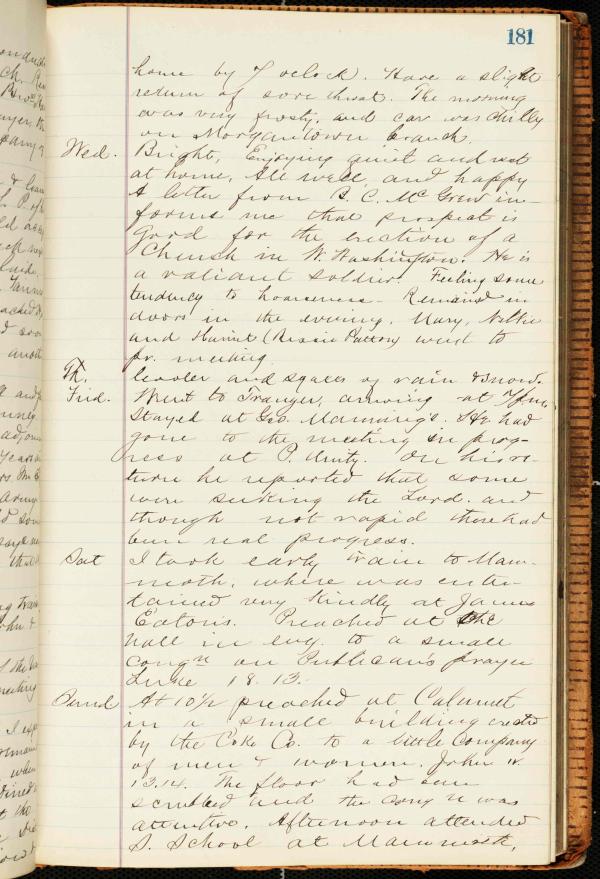 181
home by 7 oclock. Have a slight
return of sore throat. The morning
was very frosty, and car was chilly
on Morgantown branch.
Wed. Bright, Enjoying quiet and rest
at home, All well and happy
A letter from B. C. McGrew in-
forms me that prospect is
good for the erection of a
Church in W. Washington. He is
a valiant soldier. Feeling some
tendency to hoarseness - Remained in
doors in the evening. Mary, Nellie
and Harriet (Bessie Patton) went to
pr. meeting.
Th. Cooler and squalls of rain & snow.
Frid. Went to Trauger, arriving at
Stayed at Geo. Manning's. He had
gone to the meeting in prog-
ress at P. Unity. On his re-
turn he reported that some
were seeking the Lord. and
though not rapid there had
been real progress.
Sat I took early train to Mam-
moth, where was enter-
tained very kindly at James
Eaton's. Preached at the
hall in evg. to a small
congn on Publican's prayer
Luke 18. 13.
At 10 1/2 preached at Calumet
in a small building erected
by the Coke Co. to a little Company
of men & women. John
13.14. The floor had been
scrubbed and the congn was
attentive. Afternoon attended
S. School at Mammoth,